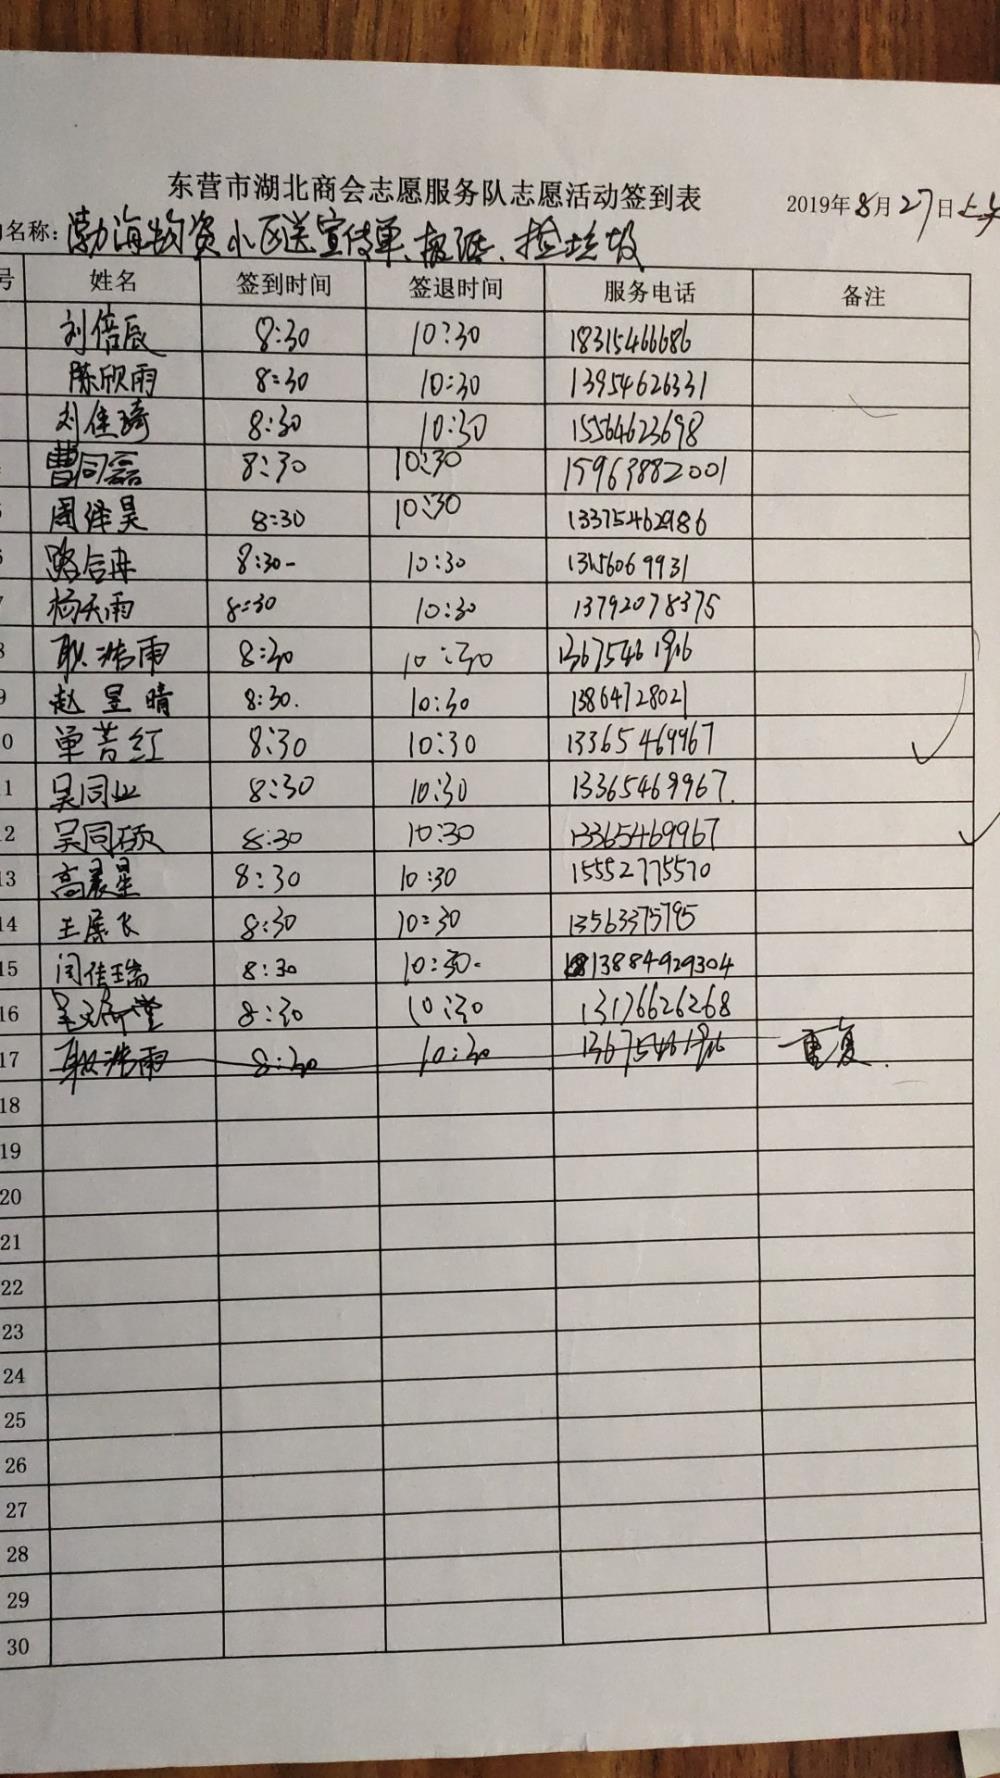 东营市湖北商会志愿服务队志愿活动签到表
2019年8月27日上午
名称:渤海物资小区送宣传单、板活、捡垃圾
号 姓名 签到时间 签退时间 服务电话 备注
刘倍辰 8:30 10:30 18315466686
陈欣雨 8:30 10:30 13954626331
刘佳琦 8:30 10:30 15564623698
曹同磊 8:30 10:30 15963882001
周泽昊 8:30 10:30 13375462986
路合冉 8:30 10:30
7 杨天雨 8:30 10:30 13792078375
8 耿浩雨 8:30 10:30
9 赵昱晴 8:30. 10:30 13864728021
0 单芳红 8:30 10:30 13365469967
1 吴同业 8:30 10:30 13365469967.
2 吴同硕 8:30 10:30 13365469967
13 高晨星 8:30 10:30 15552775570
14 王康飞 8:30 10:30 13563375795
15 闫佳瑞 8:30 10:30. 13884929304
16 8:30 10:30 13176626268
17 耿浩雨 8:30 10:30 重复.
18
19
20
21
22
23
24
25
26
27
28
29
30